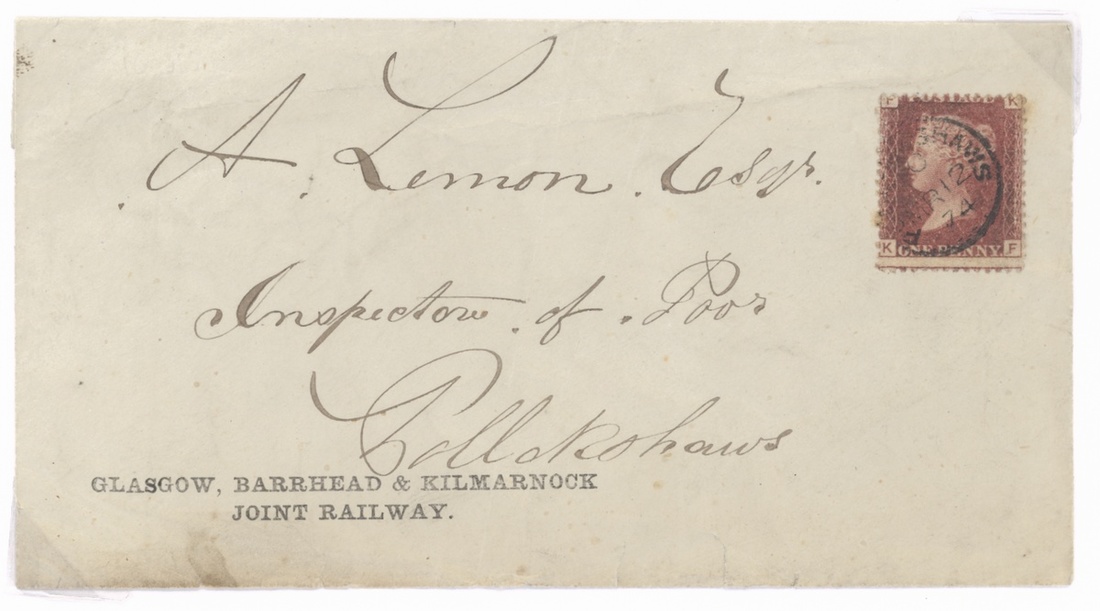 A. Lemon. Esqr.
Inspector. of. Poor
Pollokshaws
GLASGOW, BARRHEAD & KILMARNOCK
JOINT RAILWAY.
F K
SHAWS
12
74
K ONE PENNY F